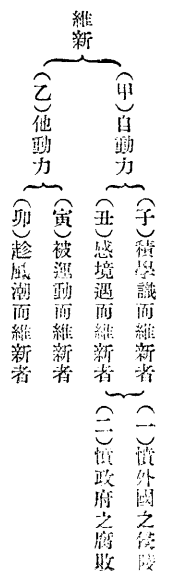 維新
(甲)自動力
(子)積學識而維新者
(丑)感境遇而維新者
(一)憤外國之侵陵
(二)憤政府之腐敗
(乙)他動力
(寅)被運動而維新者
(卯)趁風潮而維新者